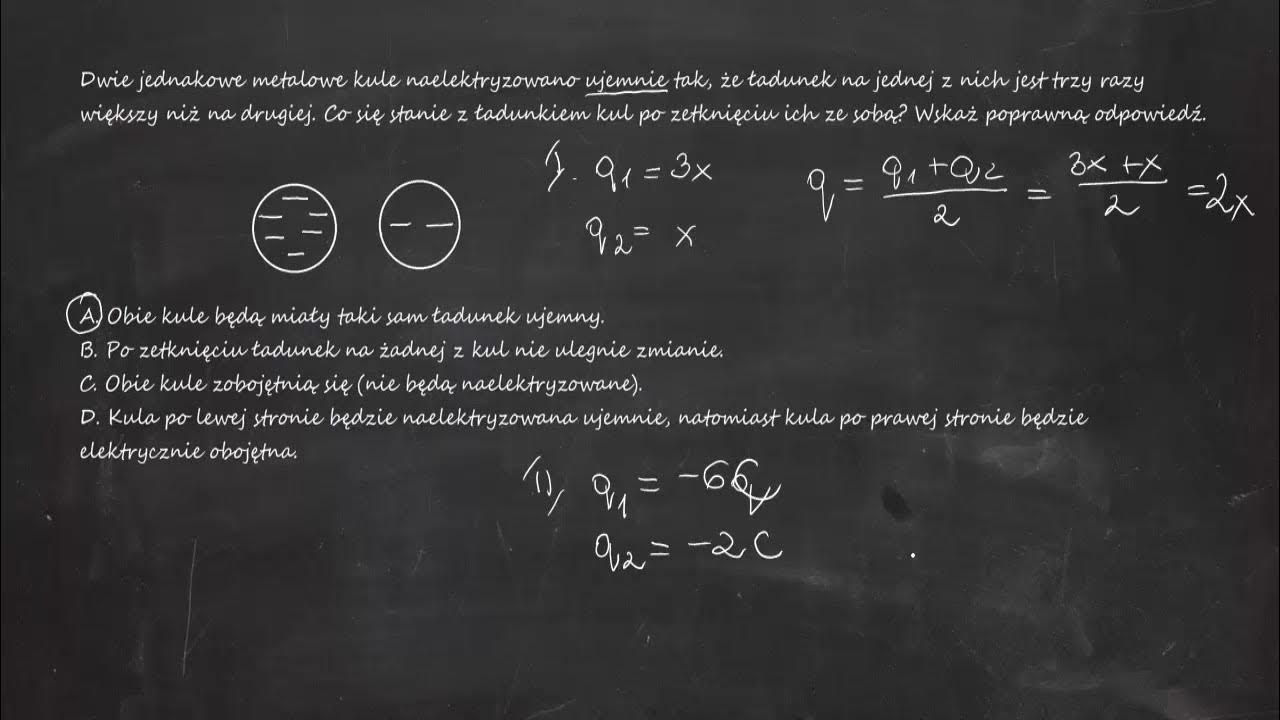 Dwie jednakowe metalowe kule naelektryzowano ujemnie tak, że ładunek na jednej z nich jest trzy razy
większy niż na drugiej. Co się stanie z ładunkiem kul po zetknięciu ich ze sobą? Wskaż poprawną odpowiedź.
I. q₁ = 3x
q₂ = x
q = (q₁ + q₂)/2 = (3x + x)/2 = 2x
A. Obie kule będą miały taki sam ładunek ujemny.
B. Po zetknięciu ładunek na żadnej z kul nie ulegnie zmianie.
C. Obie kule zobojętnią się (nie będą naelektryzowane).
D. Kula po lewej stronie będzie naelektryzowana ujemnie, natomiast kula po prawej stronie będzie
elektrycznie obojętna.
II, q₁ = -6
q₂ = -2C